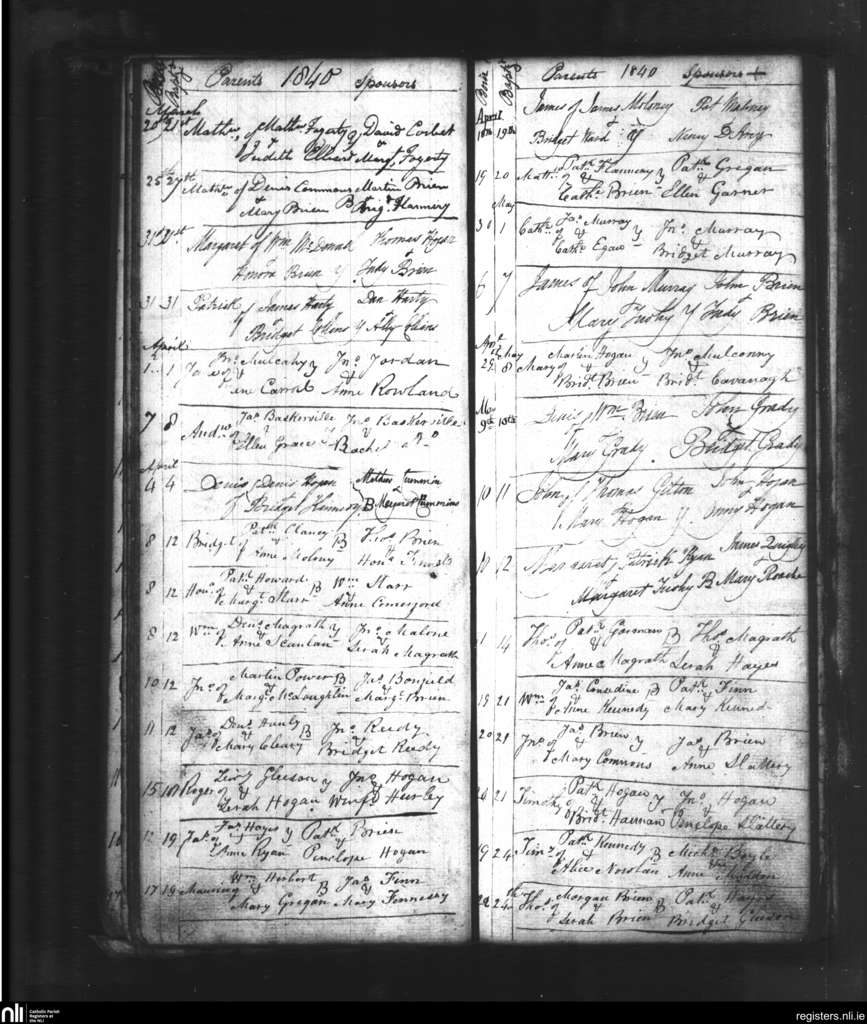 Parents 1840 Sponsors
March
20th 21st Mathw of Mathw Fogerty & David Corbet
& Judith Margt Fogerty
25th 27th Mathw of Denis Commons Martin Brien
& Mary Brien B Brigt Flannery
31st 31st Margaret of Wm McDonah Thomas Hogan
Honora Brien y Judy Brien
31 31 Patrick of James Harty Dan Harty
& Bridget Collins y Ally Collins
April
1 1 Jas of Mulcahy y Jno Jordan
Carrol Anne Rowland
7 8 Andw of Jas Baskerville Jno Baskerville
Ellen Grace & Rachel Do
April
4 4 Denis of Denis Hogan Mathew Cummin
& Bridget Hennesy B Margaret Cummins
8 12 Bridget of Patk Clancy B Thos Brien
& Jane Molony Hona
8 12 Hona of Patk Howard B Wm Starr
& Margt Starr Anne Comerford
8 12 Wm of Denis Magrath y Jno Malone
& Anne Scanlan Serah Magrath
10 12 Jno of Martin Power B Jas Bonfield
& Margt McLoughlin Margt Brien
11 12 Jas of Denis Hanly B Jno Reedy
& Mary Cleary Bridget Reedy
15 Roger of Gleeson y Jno Hogan
& Serah Hogan Winifd Hurley
12 19 Jas of Jas Hayes y Patk Brien
& Anne Ryan Penelope Hogan
17 19 Wm Herbert B Jas Finn
Mary Gregan Mary Fennessy
Born Bapt Parents 1840 Sponsors
April
18th 19th James of James Moloney Pat Maloney
& Bridget Ward y
19 20 Matt of Patk Flannery y Patk Gregan
& Cathe Brien Ellen Garner
May
30 1 Cathe of Jas Murray y Jno Murray
& Cathe Egan Bridget Murray
6 7 James of John Murray John Brien
Mary Tuohy y Judy Brien
April May
29 8 Mary of Martin Hogan y Jno Mulconry
& Bridt Brien Bridt Cavanagh
May
9th 10th Denis of Wm Brien John Grady
& Mary Grady Bridget Grady
10 11 John of Thomas John Hogan
Mary Hogan y Hogan
12 Margaret of Patrick Ryan James Quigley
Margaret Tuohy B Mary Roache
14 Thos of Patk Gorman B Thos Magrath
& Anne Magrath Serah Hayes
19 21 Wm of Jas Considine B Patk Finn
& Anne Kennedy Mary
20 21 Jno of Jas Brien y Jas Brien
& Mary Commons Anne Slattery
21 Timothy of Patk Hogan y Jno Hogan
& Bridt Hannan Penelope Slattery
19 24 Timy of Patk Kennedy B Michl Boyle
& Alice Nowlan Anne
24th Thos of Morgan Brien B Patk Hayes
& Serah Brien Bridget Gleeson
nli
Catholic Parish
Registers at
the NLI
registers.nli.ie